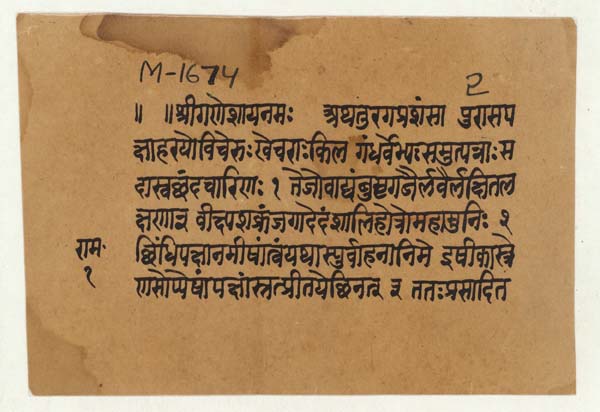 M-1674
२
॥ ॥श्रीगणेशायनमः अथतुरगप्रशंसा पुरासप
क्षाहरयोविचेरुःखेचराःकिल गंधर्वेभ्यःसमुत्पन्नाःस
दास्वछंदचारिणः १
क्षणान् वीक्ष्यशक्रंजगादेदंशालिहोत्रोमहामुनिः २
छिंधिपक्षानमीषांत्वंयथास्युर्वाहनानिमे इषीकास्त्रे
णसोप्येषांपक्षांस्तत्प्रीतयेछिनत् ३ ततःप्रसादित
रामः
१